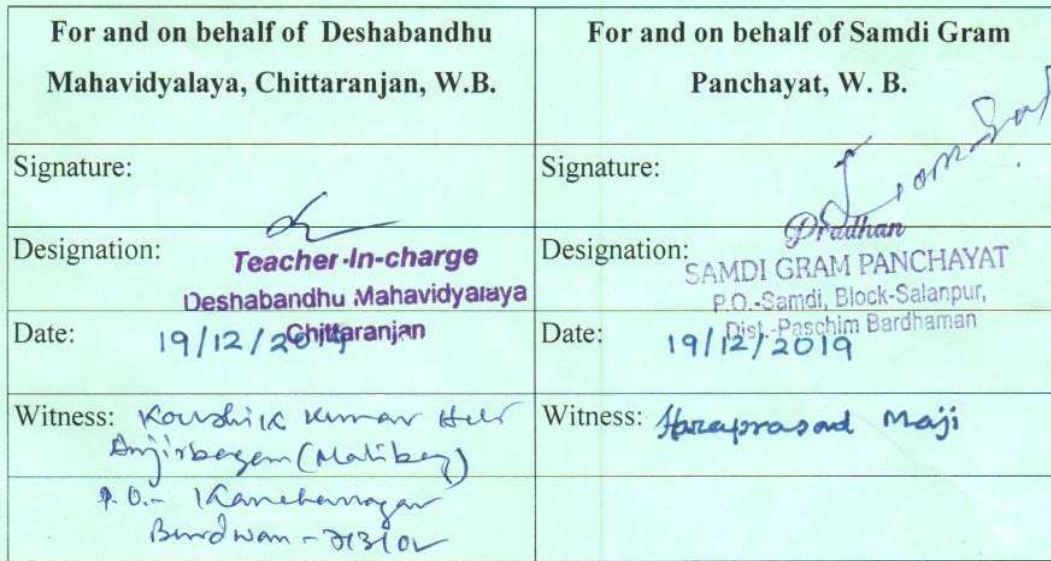 For and on behalf of Deshabandhu
Mahavidyalaya, Chittaranjan, W.B.
For and on behalf of Samdi Gram
Panchayat, W. B.
Signature:
Signature:
Designation:
Teacher-In-charge
Deshabandhu Mahavidyalaya
Chittaranjan
Designation:
Pradhan
SAMDI GRAM PANCHAYAT
P.O.-Samdi, Block-Salanpur,
Dist.-Paschim Bardhaman
Date: 19/12/2019
Date: 19/12/2019
Witness: Koushik Kumar
Witness: Haraprasad Maji
P.O.- Kanchannagar
Burdwan - 713102